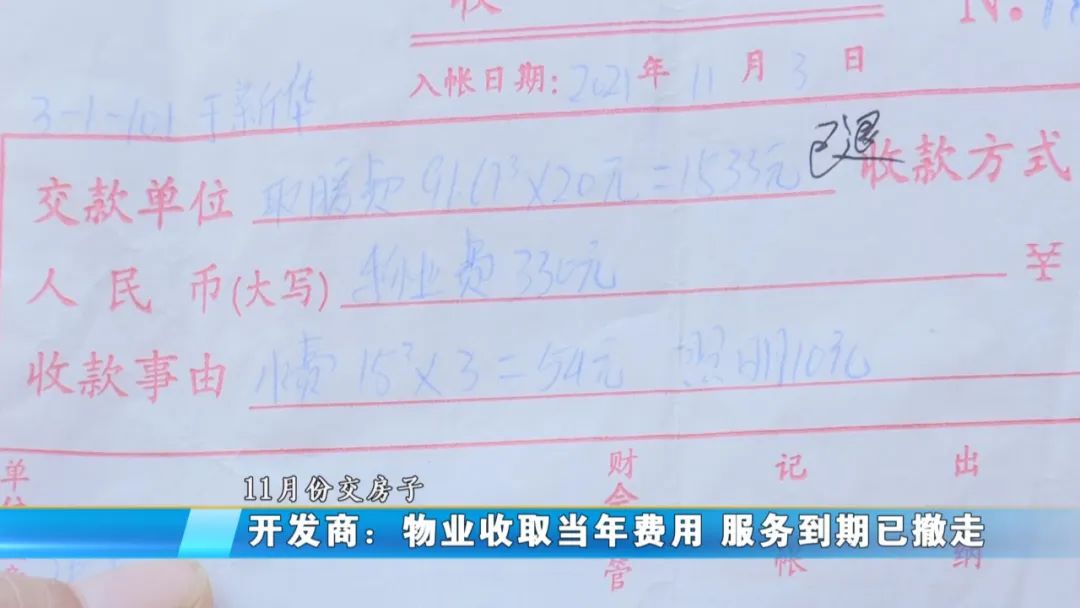 收
No.
入帐日期：2021年11月3日
3-1-101 于新华
交款单位 取暖费 91.67³×20元=1533元 已退 收款方式
人民币(大写) 物业费 330元 ¥
收款事由 水费 15³×3=54元 照明10元
单 财 记 出
11月份交房子
开发商：物业收取当年费用 服务到期已撤走
管 帐 纳